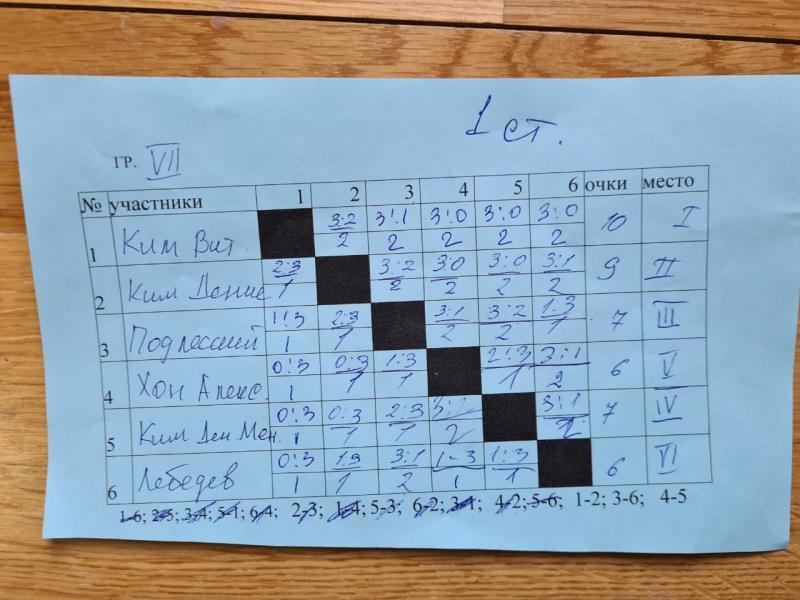 1 ст.
ГР. VII
№ участники 1 2 3 4 5 6 очки место
1 Ким Вит. 3:2 3:1 3:0 3:0 3:0 10 I
2 2 2 2 2
2 Ким Денис 2:3 3:2 3:0 3:0 3:1 9 II
1 2 2 2 2
3 Подлесный 1:3 2:3 3:1 3:2 1:3 7 III
1 1 2 2 1
4 Хон Алекс. 0:3 0:3 1:3 2:3 3:1 6 V
1 1 1 1 2
5 Ким Ден Мен. 0:3 0:3 2:3 3:2 3:1 7 IV
1 1 1 2 2
6 Лебедев 0:3 1:3 3:1 1-3 1:3 6 VI
1 1 2 1 1
1-6; 2-5; 3-4; 5-1; 6-4; 2-3; 1-4; 5-3; 6-2; 3-1; 4-2; 5-6; 1-2; 3-6; 4-5